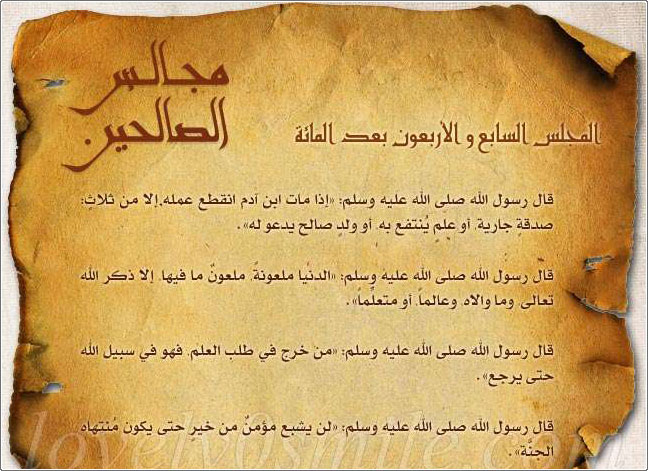 مجالس
الصالحين
المجلس السابع و الأربعون بعد المائة
قال رسول الله صلى الله عليه وسلم: «إذا مات ابن آدم انقطع عمله إلا من ثلاثٍ:
صدقةٍ جارية، أو علمٍ يُنتفع به، أو ولدٍ صالح يدعو له».
قال رسول الله صلى الله عليه وسلم: «الدنيا ملعونةٌ، ملعونٌ ما فيها، إلا ذكر الله
تعالى، وما والاه، وعالماً، أو متعلِّماً».
قال رسول الله صلى الله عليه وسلم: «من خرج في طلب العلم، فهو في سبيل الله
حتى يرجع».
قال رسول الله صلى الله عليه وسلم: «لن يشبع مؤمنٌ من خيرٍ حتى يكون مُنتهاه
الجنَّة».
lovely0smile.com